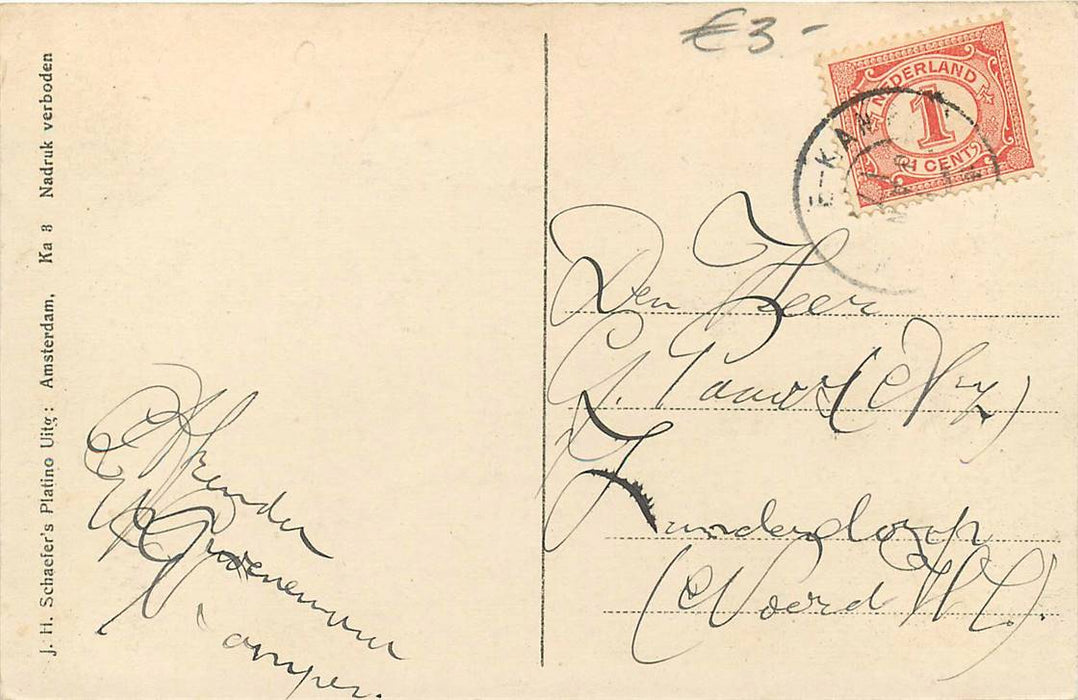 J. H. Schaefer's Platino Uitg: Amsterdam, Ka 8 Nadruk verboden
€3-
NEDERLAND
1
1 CENT
E-KAM
Den Heer
G. Pauw (Wz)
Zunderdorp
(Noord H.).
Afzender
Groeneveer
Kampen.